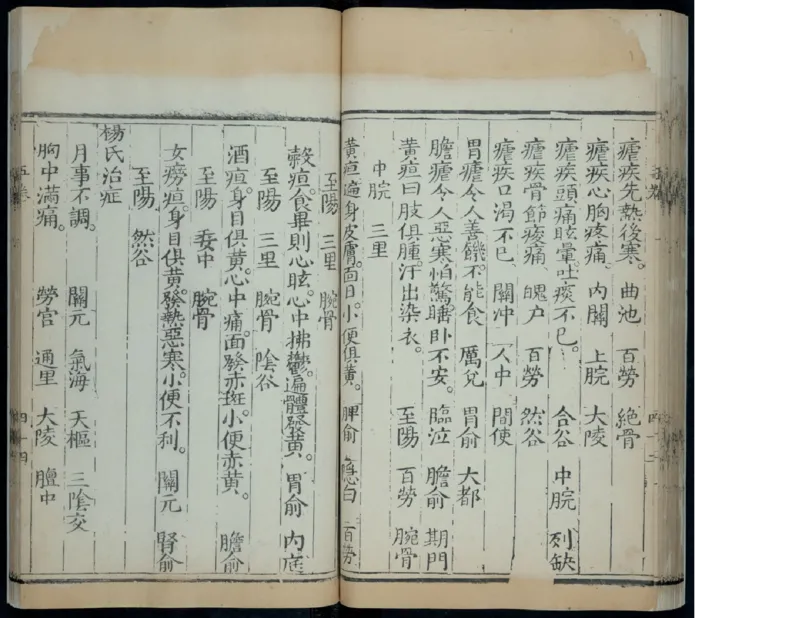 瘧疾先熱後寒。 曲池 百勞 絕骨
瘧疾心胸疼痛。 内關 上脘 大陵
瘧疾頭痛眩暈。吐痰不已。 合谷 中脘 列缺
瘧疾骨節痠痛 魄户 百勞 然谷
瘧疾口渴不已 關冲 人中 間使
胃瘧令人善饑。不能食 厲兌 胃俞 大都
膽瘧令人惡寒怕驚。睡卧不安。 臨泣 膽俞 期門
黄疸曰肢俱腫。汗出染衣。 至陽 百勞 腕骨
中脘 三里
黄疸遍身皮膚。面目。小便俱黄。 脾俞 隱白 百勞
至陽 三里 腕骨
穀疸。食畢則心眩。心中拂鬱。遍體發黄。 胃俞 内庭
至陽 三里 腕骨 陰谷
酒疸。身目俱黄。心中痛。面發赤斑。小便赤黄。 膽俞
至陽 委中 腕骨
女癆疸。身目俱黄。發熱惡寒。小便不利。 關元 腎俞
至陽 然谷
楊氏治症
月事不調。 關元 氣海 天樞 三陰交
胸中滿痛。 勞宫 通里 大陵 膻中
五卷
四十四